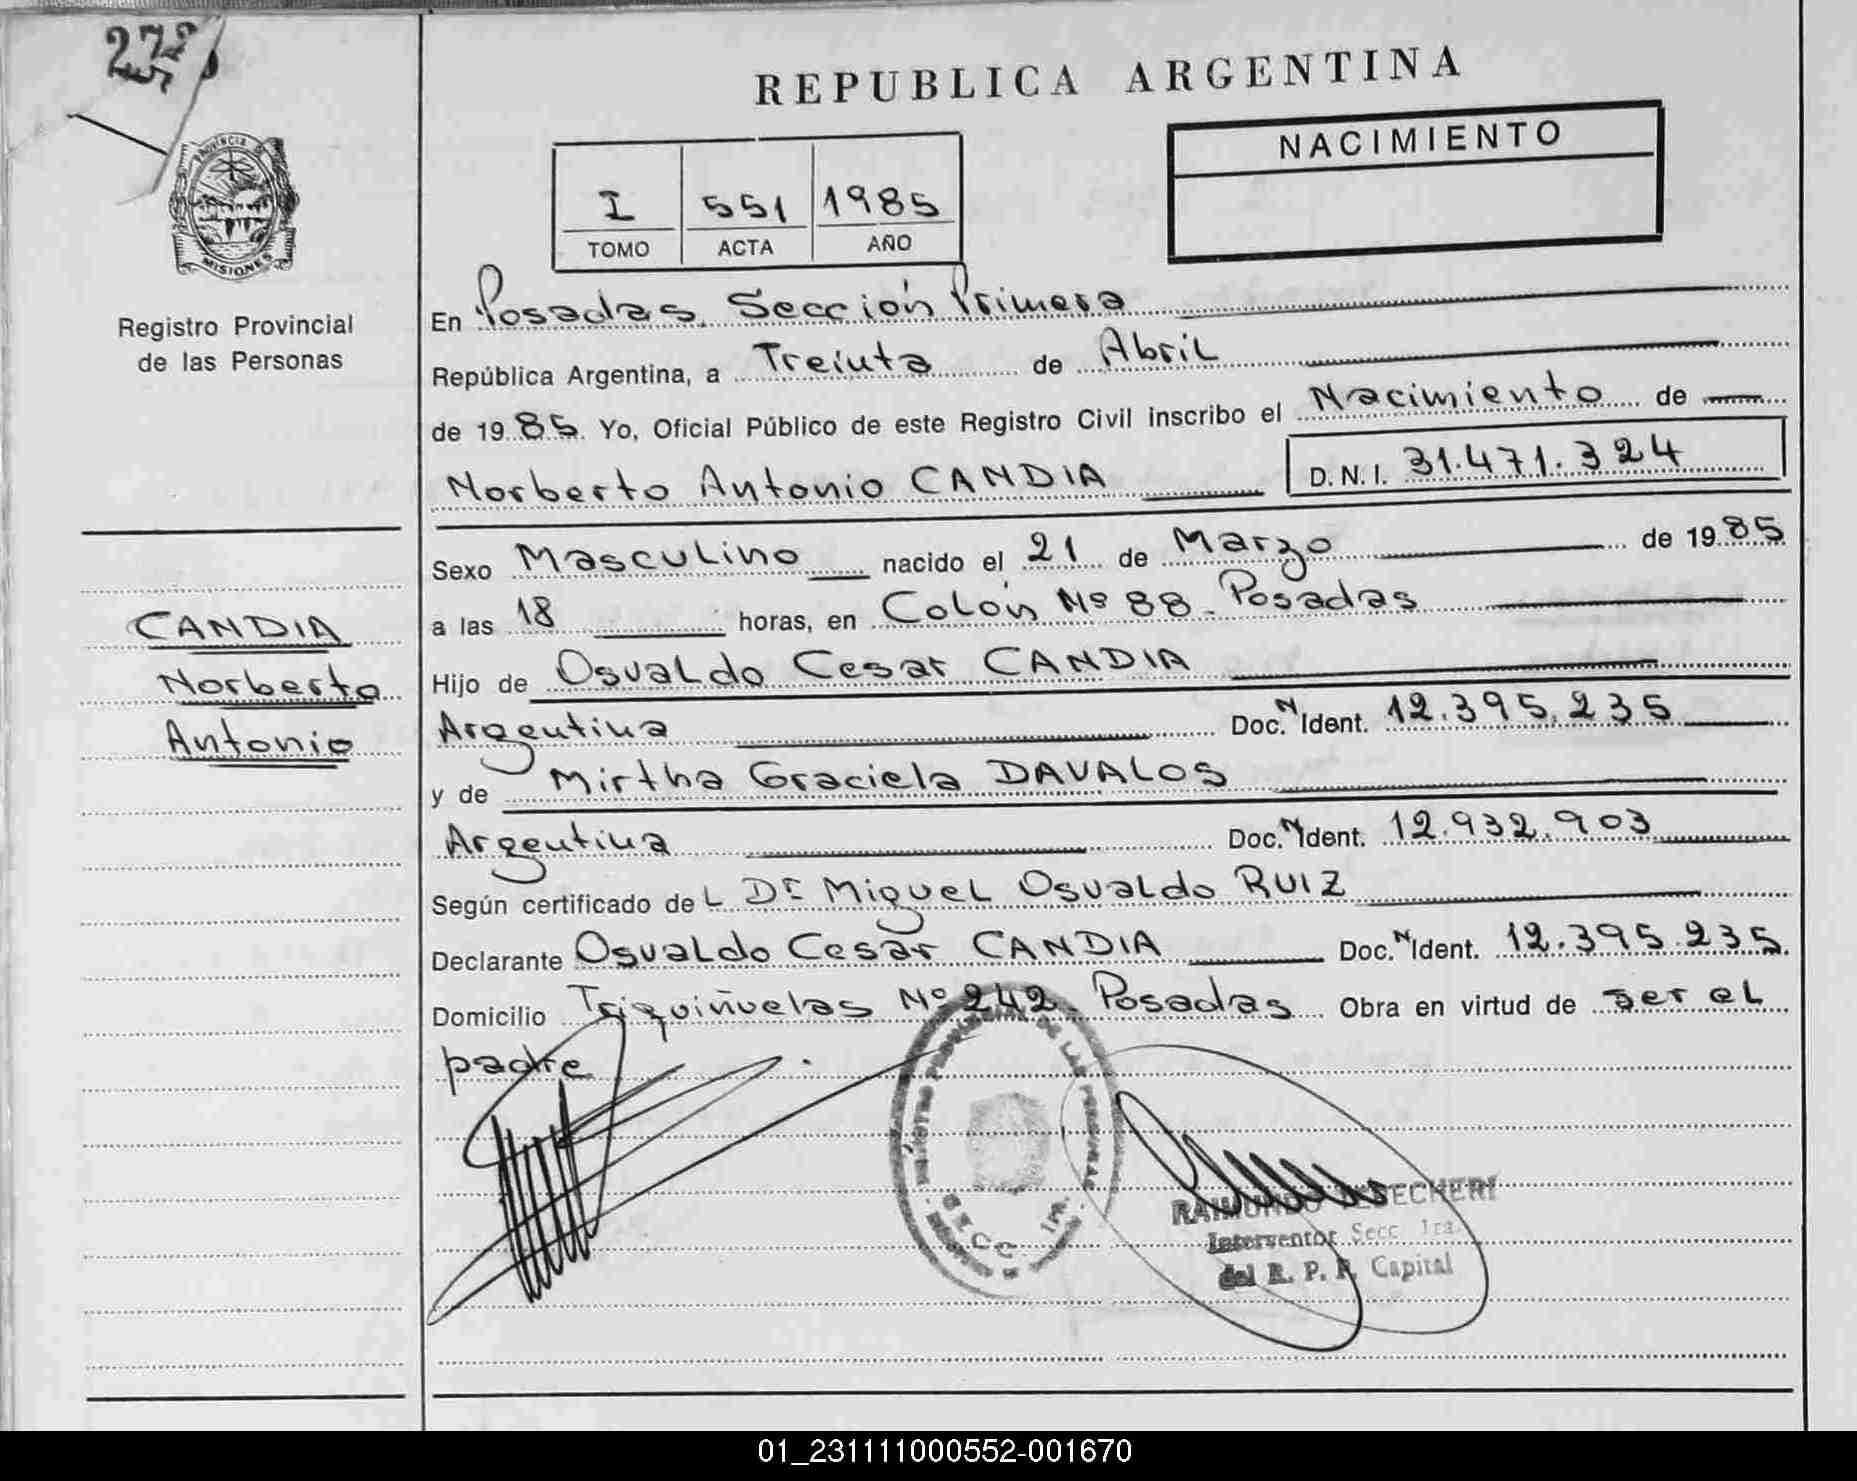 272
REPUBLICA ARGENTINA
NACIMIENTO
I 551 1985
TOMO ACTA AÑO
PROVINCIA DE
MISIONES
Registro Provincial
de las Personas
En Posadas, Sección Primera
República Argentina, a Treinta de Abril
de 1985. Yo, Oficial Público de este Registro Civil inscribo el Nacimiento de
Norberto Antonio CANDIA D.N.I. 31.471.324
Sexo Masculino nacido el 21 de Marzo de 1985
a las 18 horas, en Colón Nº 88 - Posadas
Hijo de Osvaldo Cesar CANDIA
Argentina Doc. N Ident. 12.395.235
y de Mirtha Graciela DAVALOS
Argentina Doc. N Ident. 12.932.903
Según certificado de L Dr Miguel Osvaldo RUIZ
Declarante Osvaldo Cesar CANDIA Doc. N Ident. 12.395.235.
Domicilio Triquiñuelas Nº 242- Posadas Obra en virtud de ser el
padre
CANDIA
Norberto
Antonio
REGISTRO PROVINCIAL DE LAS PERSONAS
SECC. 1ra.
RAIMUNDO
Interventor Secc. 1ra.
del R. P. P. Capital
01_231111000552-001670